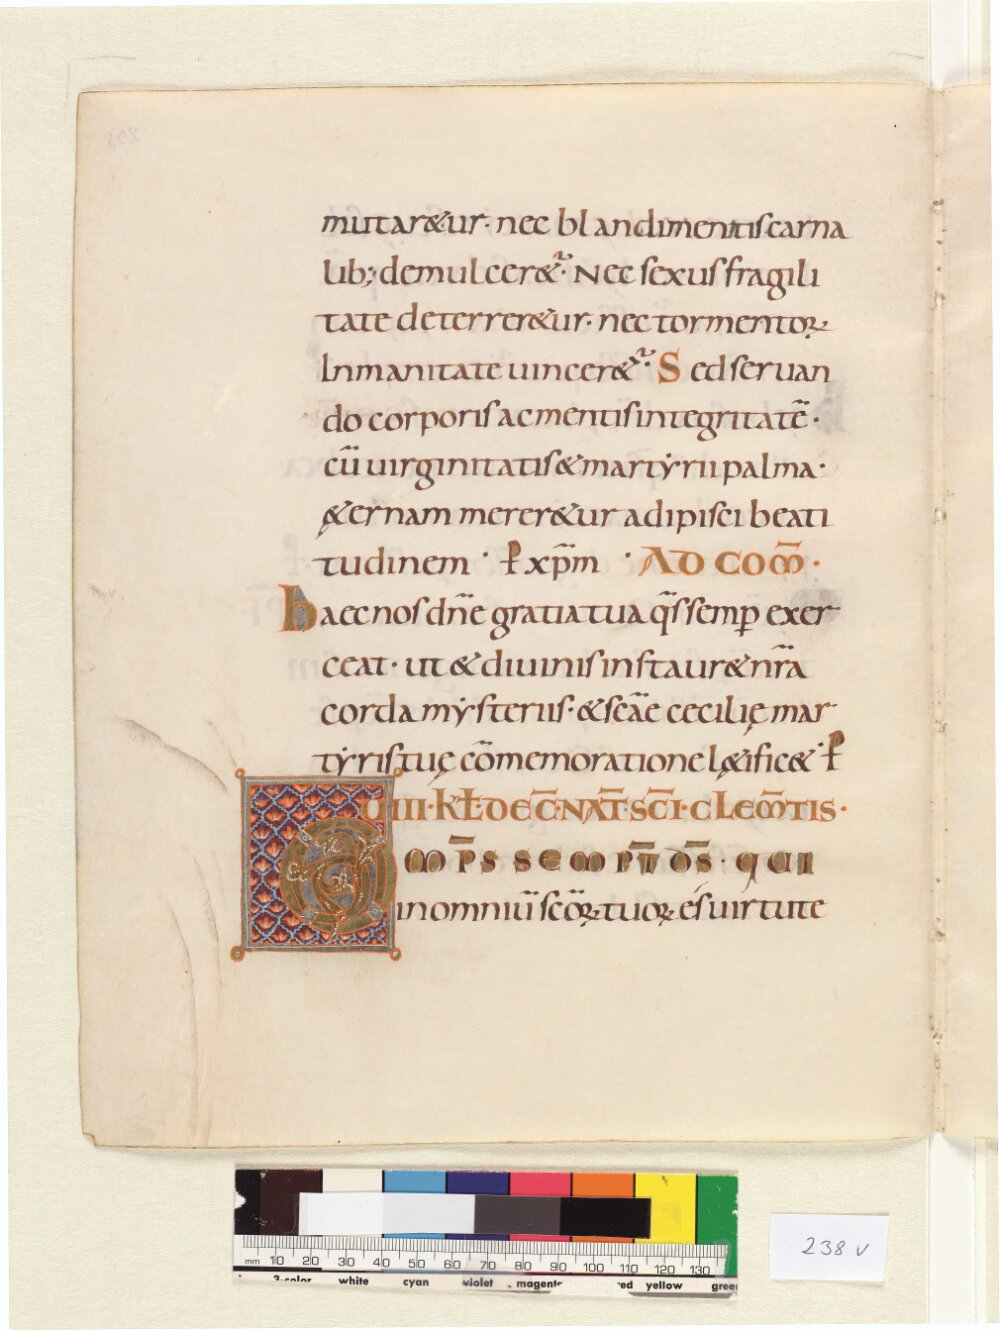 mutar&ur· nec blandimentis carna
lib; demulcer&ᷣ· Nec sexus fragili
tate deterrer&ur· nec tormentoꝝ
Inmanitate uincer&ᷣ· Sed seruan
do corporis ac mentis integritatē·
cū uirginitatis & martẏrii palma·
&ernam merer&ur adipisci beati
tudinem · P xp̄m · AD COM̄·
haec nos dn̄e gratia tua q̄s semꝑ exer
ceat· ut & diuinis instaur& nr̄a
corda mẏsteriis· & scāe cecilię mar
tẏris tuę cōmemoratione lętific& · P
VIIII·KL̄ DEC̄·NAT̄ SC̄I·CLEM̄TIS·
OMP̄S SEMPT̄ DS̄· QUI
in omniū scōꝝ tuoꝝ es uirtute
238 v
mm 10 20 30 40 50 60 70 80 90 100 110 120 130
3-color white cyan violet magenta red yellow green